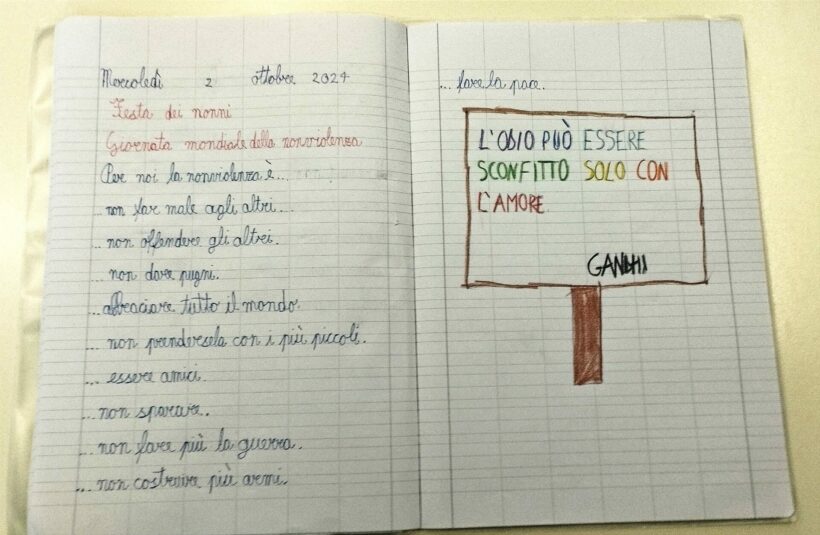 Mercoledì 2 ottobre 2024
Festa dei nonni
Giornata mondiale della nonviolenza
Per noi la nonviolenza è...
... non far male agli altri...
... non offendere gli altri.
... non dare pugni.
... abbracciare tutto il mondo.
... non prendersela con i più piccoli.
... essere amici.
... non sparare.
... non fare più la guerra.
... non costruire più armi.
... fare la pace.
L'ODIO PUÒ ESSERE
SCONFITTO SOLO CON
L'AMORE
GANDHI